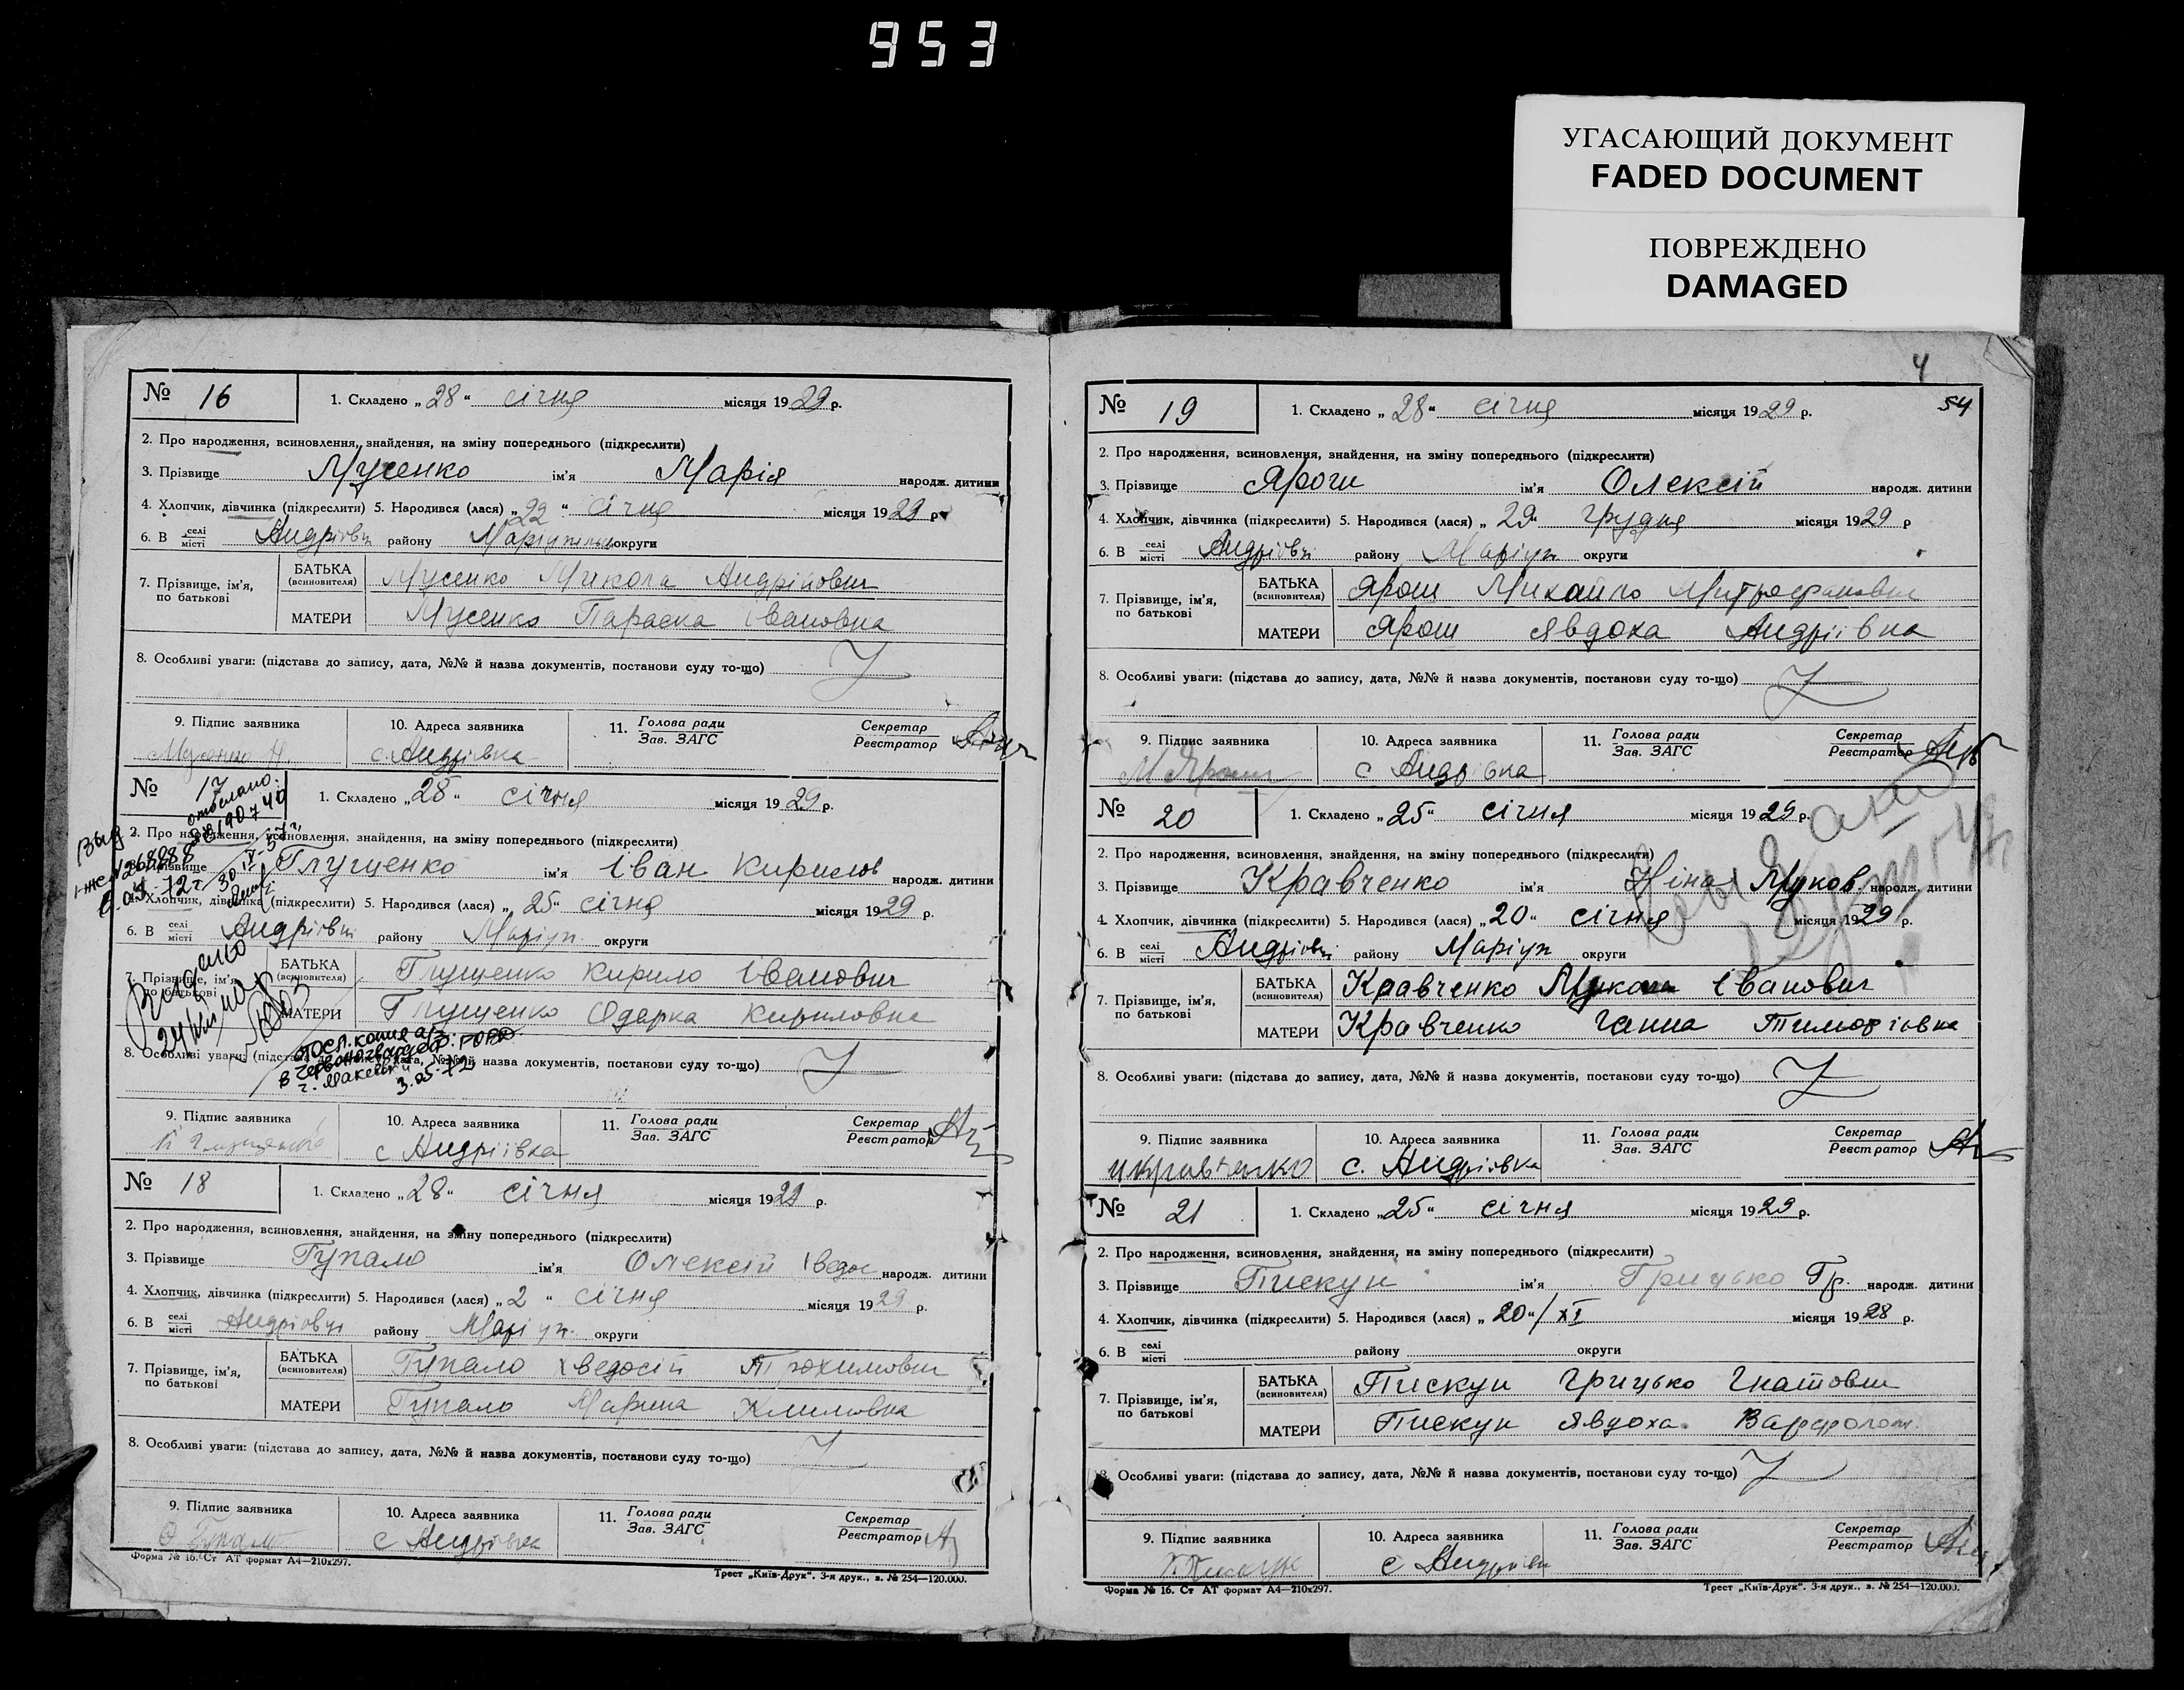 953
УГАСАЮЩИЙ ДОКУМЕНТ
FADED DOCUMENT
ПОВРЕЖДЕНО
DAMAGED
№ 16 1. Складено „28“ січня місяця 1929 р.
2. Про народження, всиновлення, знайдення, на зміну попереднього (підкреслити)
3. Прізвище Мусенко ім'я Марія народж. дитини
4. Хлопчик, дівчинка (підкреслити) 5. Народився (лася) „22“ січня місяця 1929 р.
6. В селі місті Андріовці району Маріупільськ округи
7. Прізвище, ім'я, по батькові
БАТЬКА (всиновителя) Мусенко Микола Андрійович
МАТЕРИ Мусенко Параска Івановна
8. Особливі уваги: (підстава до запису, дата, №№ й назва документів, постанови суду то-що)
9. Підпис заявника 10. Адреса заявника 11. Голова ради Зав. ЗАГС Секретар Реєстратор
с. Андріівка
№ 17 1. Складено „28“ січня місяця 1929 р.
2. Про народження, всиновлення, знайдення, на зміну попереднього (підкреслити)
3. Прізвище Глущенко ім'я Іван Кирилов народж. дитини
4. Хлопчик, дівчинка (підкреслити) 5. Народився (лася) „25“ січня місяця 1929 р.
6. В селі місті Андріовці району Маріуп. округи
7. Прізвище, ім'я, по батькові
БАТЬКА (всиновителя) Глущенко Кирило Іванович
МАТЕРИ Глущенко Одарка Кириловна
8. Особливі уваги: (підстава до запису, дата, №№ й назва документів, постанови суду то-що)
9. Підпис заявника 10. Адреса заявника 11. Голова ради Зав. ЗАГС Секретар Реєстратор
с Андріівка
№ 18 1. Складено „28“ січня місяця 1929 р.
2. Про народження, всиновлення, знайдення, на зміну попереднього (підкреслити)
3. Прізвище Гупало ім'я Олексій Хведос народж. дитини
4. Хлопчик, дівчинка (підкреслити) 5. Народився (лася) „2“ січня місяця 1929 р.
6. В селі місті Андріовці району Маріуп. округи
7. Прізвище, ім'я, по батькові
БАТЬКА (всиновителя) Гупало Хведосій Трохимович
МАТЕРИ Гупало Марина Климовна
8. Особливі уваги: (підстава до запису, дата, №№ й назва документів, постанови суду то-що)
9. Підпис заявника 10. Адреса заявника 11. Голова ради Зав. ЗАГС Секретар Реєстратор
с Андріівка
Форма № 16. Ст АТ формат А4—210x297.
Трест „Київ-Друк“. 3-я друк., з. № 254—120.000.
4
54
№ 19 1. Складено „28“ січня місяця 1929 р.
2. Про народження, всиновлення, знайдення, на зміну попереднього (підкреслити)
3. Прізвище Ярош ім'я Олексій народж. дитини
4. Хлопчик, дівчинка (підкреслити) 5. Народився (лася) „29“ грудня місяця 1929 р
6. В селі місті Андріовці району Маріуп округи
7. Прізвище, ім'я, по батькові
БАТЬКА (всиновителя) Ярош Михайло Митрофанович
МАТЕРИ Ярош Явдоха Андріівна
8. Особливі уваги: (підстава до запису, дата, №№ й назва документів, постанови суду то-що)
9. Підпис заявника 10. Адреса заявника 11. Голова ради Зав. ЗАГС Секретар Реєстратор
М Ярош с Андріівка
№ 20 1. Складено „25“ січня місяця 1929 р.
2. Про народження, всиновлення, знайдення, на зміну попереднього (підкреслити)
3. Прізвище Кравченко ім'я Ніна Муков. народж. дитини
4. Хлопчик, дівчинка (підкреслити) 5. Народився (лася) „20“ січня місяця 1929 р.
6. В селі місті Андріовці району Маріуп округи
7. Прізвище, ім'я, по батькові
БАТЬКА (всиновителя) Кравченко Іванович
МАТЕРИ Кравченко Ганна Тимофіовна
8. Особливі уваги: (підстава до запису, дата, №№ й назва документів, постанови суду то-що)
9. Підпис заявника 10. Адреса заявника 11. Голова ради Зав. ЗАГС Секретар Реєстратор
Кравченко с. Андріовка
№ 21 1. Складено „25“ січня місяця 1929 р.
2. Про народження, всиновлення, знайдення, на зміну попереднього (підкреслити)
3. Прізвище Пискун ім'я Грицько Гр. народж. дитини
4. Хлопчик, дівчинка (підкреслити) 5. Народився (лася) „20“/XI місяця 1928 р.
6. В селі місті району округи
7. Прізвище, ім'я, по батькові
БАТЬКА (всиновителя) Пискун Грицько Гнатович
МАТЕРИ Пискун Явдоха. Варфолом.
8. Особливі уваги: (підстава до запису, дата, №№ й назва документів, постанови суду то-що)
9. Підпис заявника 10. Адреса заявника 11. Голова ради Зав. ЗАГС Секретар Реєстратор
с Андріівк
Форма № 16. Ст АТ формат А4—210x297.
Трест „Київ-Друк“. 3-я друк., з. № 254—120.000.